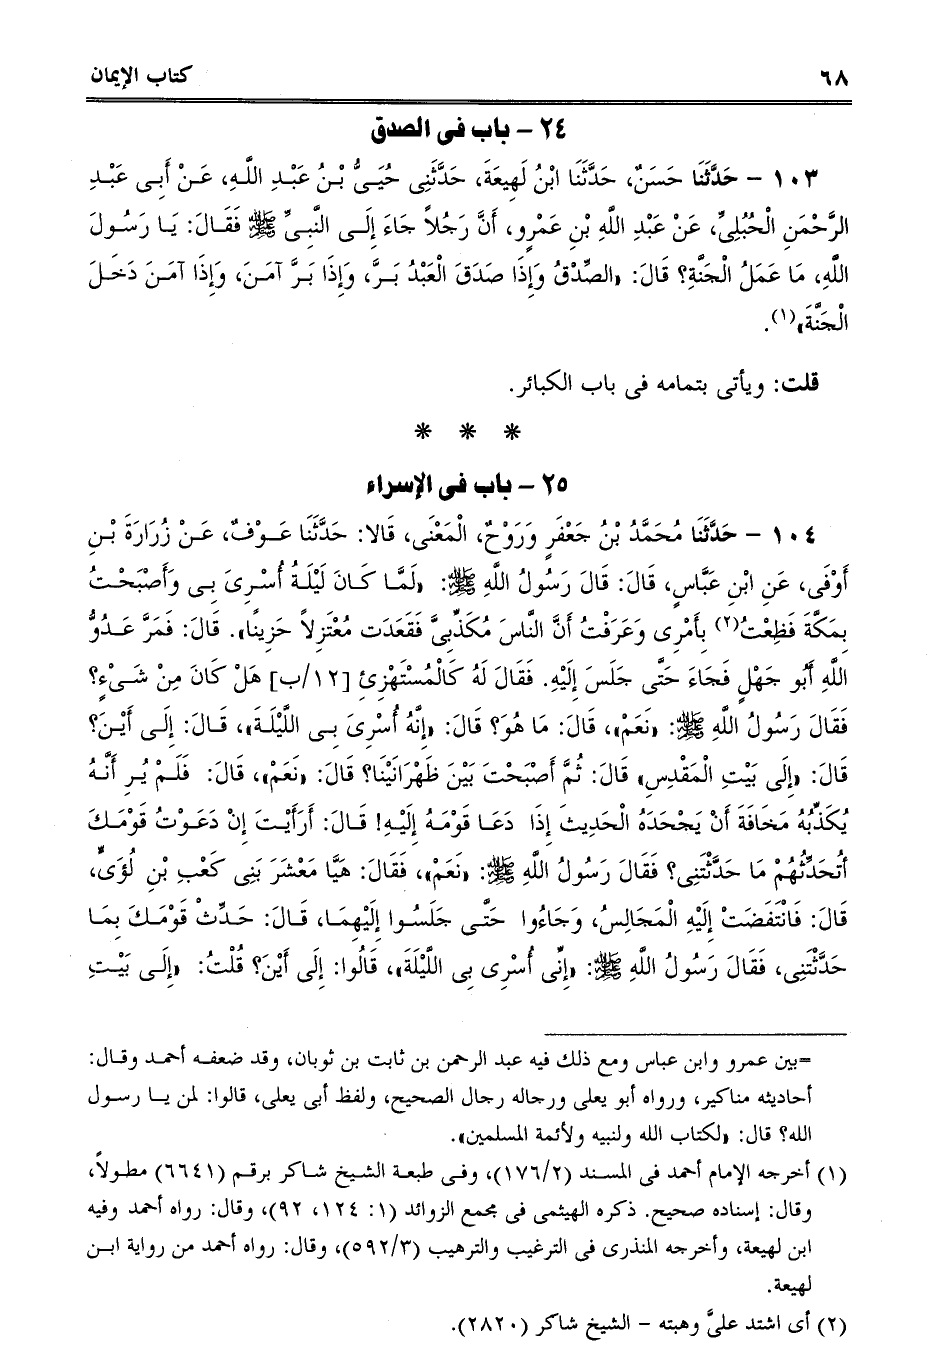 ٦٨ كتاب الإيمان
٢٤ – باب فى الصدق
١٠٣ – حَدَّثَنَا حَسَنٌ، حَدَّثَنَا ابْنُ لَهِيعَةَ، حَدَّثَنِى حُيَىُّ بْنُ عَبْدِ اللَّهِ، عَنْ أَبِى عَبْدِ
الرَّحْمَنِ الْحُبُلِىِّ، عَنْ عَبْدِ اللَّهِ بْنِ عَمْرٍو، أَنَّ رَجُلاً جَاءَ إِلَى النَّبِىِّ ﷺ فَقَالَ: يَا رَسُولَ
اللَّهِ، مَا عَمَلُ الْجَنَّةِ؟ قَالَ: «الصِّدْقُ وَإِذَا صَدَقَ الْعَبْدُ بَرَّ، وَإِذَا بَرَّ آمَنَ، وَإِذَا آمَنَ دَخَلَ
الْجَنَّةَ»(١).
قلت: ويأتى بتمامه فى باب الكبائر.
* * *
٢٥ – باب فى الإسراء
١٠٤ – حَدَّثَنَا مُحَمَّدُ بْنُ جَعْفَرٍ وَرَوْحٌ، الْمَعْنَى، قَالا: حَدَّثَنَا عَوْفٌ، عَنْ زُرَارَةَ بْنِ
أَوْفَى، عَنِ ابْنِ عَبَّاسٍ، قَالَ: قَالَ رَسُولُ اللَّهِ ﷺ: «لَمَّا كَانَ لَيْلَةُ أُسْرِىَ بِى وَأَصْبَحْتُ
بِمَكَّةَ فَظِعْتُ(٢) بِأَمْرِى وَعَرَفْتُ أَنَّ النَّاسَ مُكَذِّبِىَّ فَقَعَدَت مُعْتَزِلاً حَزِينًا». قَالَ: فَمَرَّ عَدُوُّ
اللَّهِ أَبُو جَهْلٍ فَجَاءَ حَتَّى جَلَسَ إِلَيْهِ. فَقَالَ لَهُ كَالْمُسْتَهْزِئِ [١٢/ب] هَلْ كَانَ مِنْ شَىْءٍ؟
فَقَالَ رَسُولُ اللَّهِ ﷺ: «نَعَمْ»، قَالَ: مَا هُوَ؟ قَالَ: «إِنَّهُ أُسْرِىَ بِى اللَّيْلَةَ»، قَالَ: إِلَى أَيْنَ؟
قَالَ: «إِلَى بَيْتِ الْمَقْدِسِ» قَالَ: ثُمَّ أَصْبَحْتَ بَيْنَ ظَهْرَانَيْنَا؟ قَالَ: «نَعَمْ»، قَالَ: فَلَمْ يُرِ أَنَّهُ
يُكَذِّبُهُ مَخَافَةَ أَنْ يَجْحَدَهُ الْحَدِيثَ إِذَا دَعَا قَوْمَهُ إِلَيْهِ! قَالَ: أَرَأَيْتَ إِنْ دَعَوْتُ قَوْمَكَ
أَتُحَدِّثُهُمْ مَا حَدَّثْتَنِى؟ فَقَالَ رَسُولُ اللَّهِ ﷺ: «نَعَمْ»، فَقَالَ: هَيَّا مَعْشَرَ بَنِى كَعْبِ بْنِ لُؤَىٍّ،
قَالَ: فَانْتَفَضَتْ إِلَيْهِ الْمَجَالِسُ، وَجَاءُوا حَتَّى جَلَسُوا إِلَيْهِمَا، قَالَ: حَدِّثْ قَوْمَكَ بِمَا
حَدَّثْتَنِى، فَقَالَ رَسُولُ اللَّهِ ﷺ: «إِنِّى أُسْرِى بِى اللَّيْلَةَ»، قَالُوا: إِلَى أَيْنَ؟ قُلْتُ: «إِلَى بَيْتِ
=بين عمرو وابن عباس ومع ذلك فيه عبد الرحمن بن ثابت بن ثوبان، وقد ضعفه أحمد وقال:
أحاديثه مناكير، ورواه أبو يعلى ورجاله رجال الصحيح، ولفظ أبى يعلى، قالوا: لمن يا رسول
الله؟ قال: «لكتاب الله ولنبيه ولأئمة المسلمين».
(١) أخرجه الإمام أحمد فى المسند (١٧٦/٢)، وفى طبعة الشيخ شاكر برقم (٦٦٤١) مطولاً،
وقال: إسناده صحيح. ذكره الهيثمى فى مجمع الزوائد (١: ١٢٤، ٩٢)، وقال: رواه أحمد وفيه
ابن لهيعة، وأخرجه المنذرى فى الترغيب والترهيب (٥٩٢/٣)، وقال: رواه أحمد من رواية ابن
لهيعة.
(٢) أى اشتد علىَّ وهبته – الشيخ شاكر (٢٨٢٠).